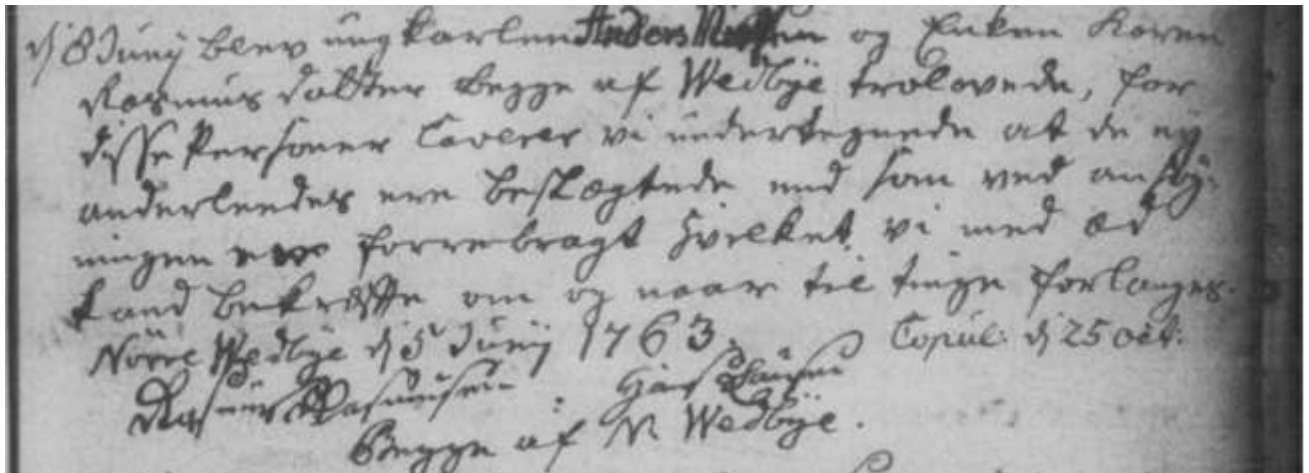 d 8 Junÿ blev ungkarlen Anders Nielsen og Enken Karen
Rasmus datter begge af Wedbÿe trolovede, for
disse Personer Caverer vi undertegnede at de eÿ
anderleedes ere beslægtede end som ved ansøg-
ningen er forrebragt hvilket vi med æd
kand bekræffte om og naar til tinge forlanges.
Nörre Wedbÿe d 5 Junÿ 1763. Copul: d 25 oct:
Rasmus Rasmusen. Hans
Begge af N. Wedbÿe.